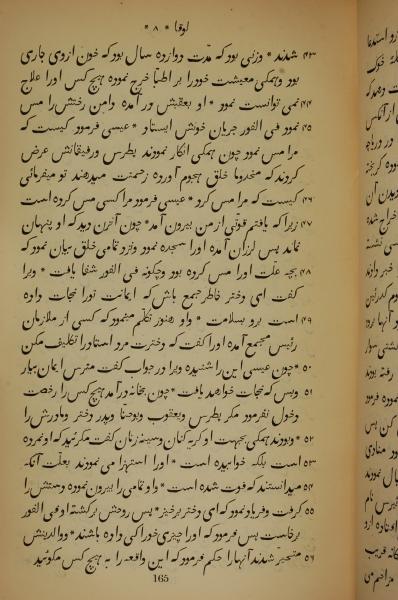 لوقا * ۸ *
۴۳ شدند * وزنی بود که مدت دوازده سال بود که خون از وی جاری
بود و همکی معیشت خود را بر اطبا خرج نموده هیچ کس او را علاج
۴۴ نمی توانست نمود * او بعقبش در آمده دامن رختش را مس
۴۵ نمود فی الفور جریان خونش ایستاد * عیسی فرمود کیست که
مرا مس نمود چون همکی انکار نمودند پطرس و رفیقانش عرض
کردند که مخدوما خلق هجوم آورده زحمتت میدهند تو میفرمائی
۴۶ کیست که مرا مس کرد * عیسی فرمود مرا کسی مس کرده است
۴۷ زیرا که یافتم قوتی از من بیرون آمد * چون آنزن دید که او پنهان
نماند پس لرزان آمده او را سجده نمود و نزد تمامی خلق بیان نمود که
۴۸ بچه علت او را مس کرده بود و چکونه فی الفور شفا یافت * ویرا
کفت ای دختر خاطر جمع باش که ایمانت تورا نجات داده
۴۹ است برو بسلامت * واو هنوز تکلم مینمود که کسی از ملازمان
رئیس مجمع آمده او را کفت که دخترت مرد استاد را تکلیف مکن
۵۰ * چون عیسی این را شنیده ویرا در جواب کفت مترس ایمان بیار
۵۱ و بس که نجات خواهد یافت * چون بخانه در آمد هیچ کس را رخصت
دخول نفرمود مکر پطرس و یعقوب و یوحنا و پدر دختر و مادرش را
۵۲ * و بودند همکی بجهت او کریه کنان و سینه زنان کفت مکرئید که او نمرده
۵۳ است بلکه خوابیده است * او را استهزا می نمودند بعلت آنکه
۵۴ میدانستند که فوت شده است * واو تمامی را بیرون نموده دستش را
۵۵ کرفت و فریاد نمود که ای دختر برخیز * پس روحش برکشته او فی الفور
برخاست پس فرمود که او را چیزی خوراکی داده باشند * و والدینش
۵۶ متحیر شدند آنها را حکم فرمود که این واقعه را به هیچ کس مکوئید
165